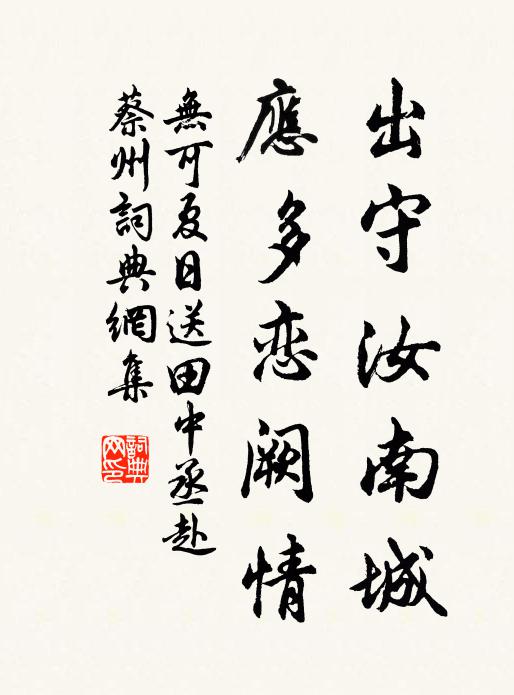 出守汝南城
應多恋阙情
無可夏日送田中丞赴
蔡州詞典網集
詞典
网印